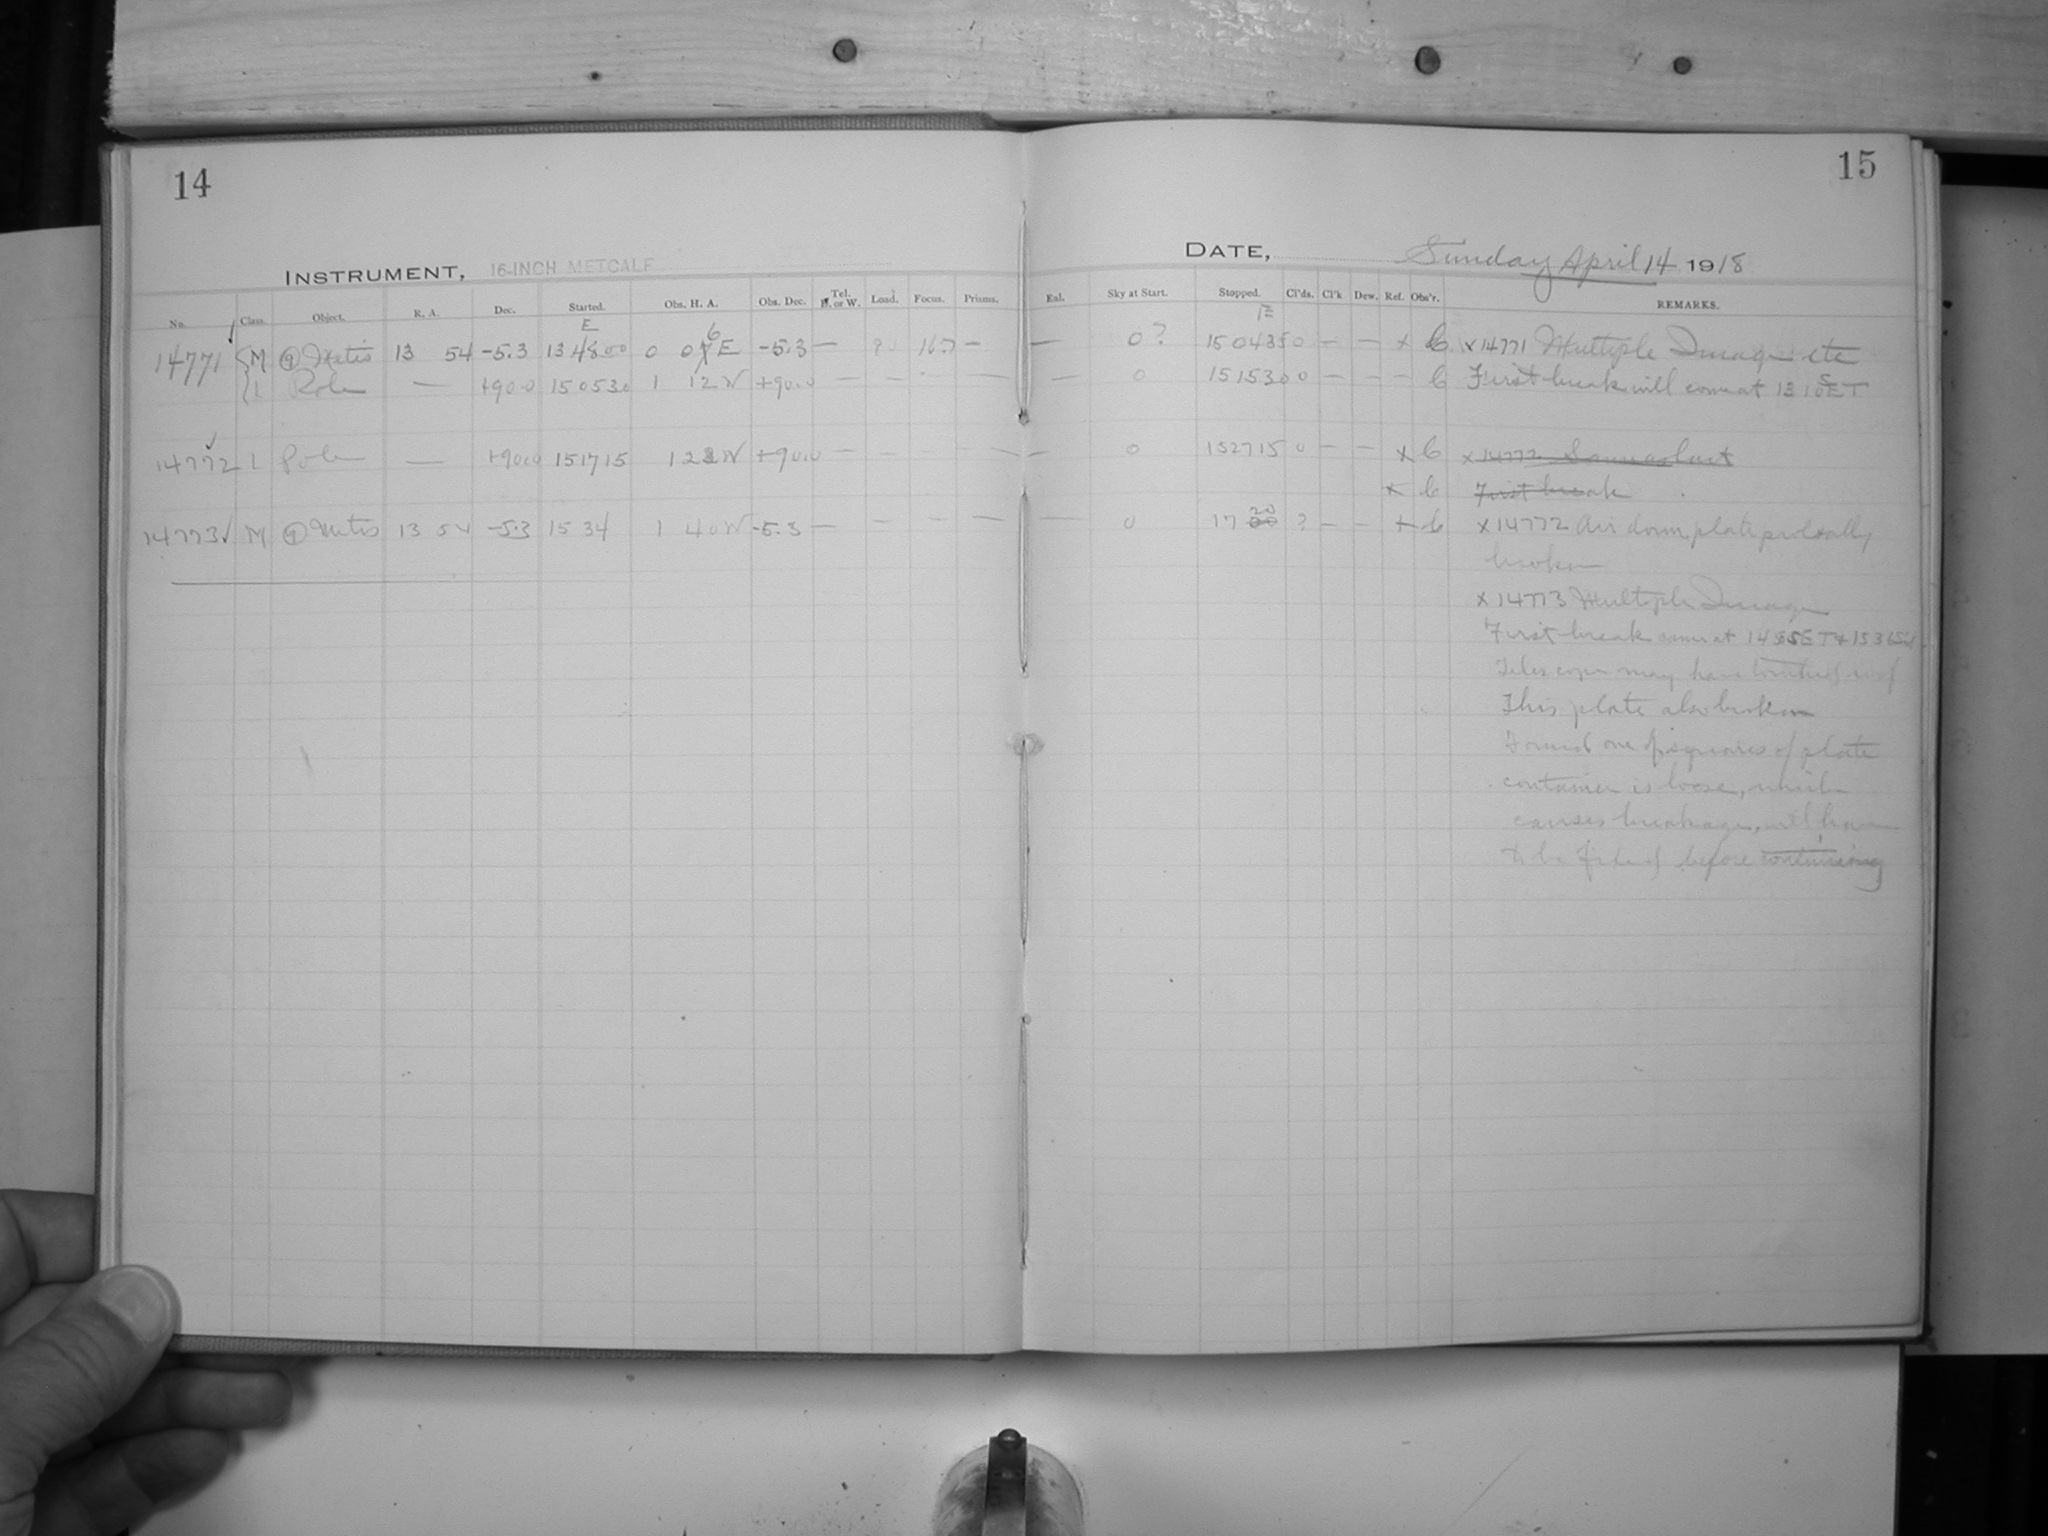 14
15
INSTRUMENT, 16-INCH METCALF
DATE, Sunday April 14 1918
No. Class. Object. R. A. Dec. Started. Obs. H. A. Obs. Dec. Tel. E. or W. Load. Focus. Prisms. Eal. Sky at Start. Stopped. Cl'ds. Cl'k Dew. Ref. Obs'r. REMARKS.
E E
14771 M (9) Metis 13 54 -5.3 13 48 00 0 06 E -5.3 — 16.7 — — 0? 15 04 35 0 — — x C x 14771 Multiple Image etc
L Pole — +90.0 15 05 30 1 12 W +90.0 — — — — 0 15 15 30 0 — — — C First break will come at
14772 L Pole — +90.0 15 17 15 1 23 W +90.0 — — — — 0 15 27 15 0 — — x C x 14772 Same as last
x C First break
14773 M (9) Metis 13 54 -5.3 15 34 1 40 W -5.3 — — — — — 0 17 20 ? — — x C x 14772 Air down plate probably
broken
x 14773 Multiple Image
First break came at
Telescope may have touched roof
This plate also broken
Found one of squares of plate
container is loose, which
causes breakage, will have
to be fixed before continuing